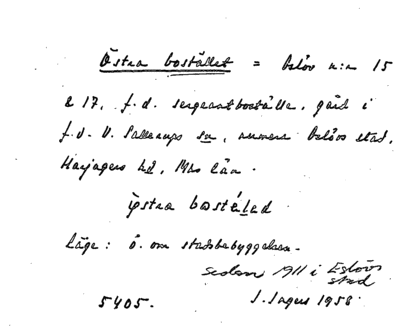 Östra bostället = Eslöv n:r 15
& 17, f.d. sergeantboställe, gård i
f.v. V. Sallerups sn, numera Eslövs stad,
Harjagers hd, Mms län.
östra bostéled
Läge: ö. om stadsbebyggelsen.
sedan 1911 i Eslövs
stad
5405. I. Ingers 1958.